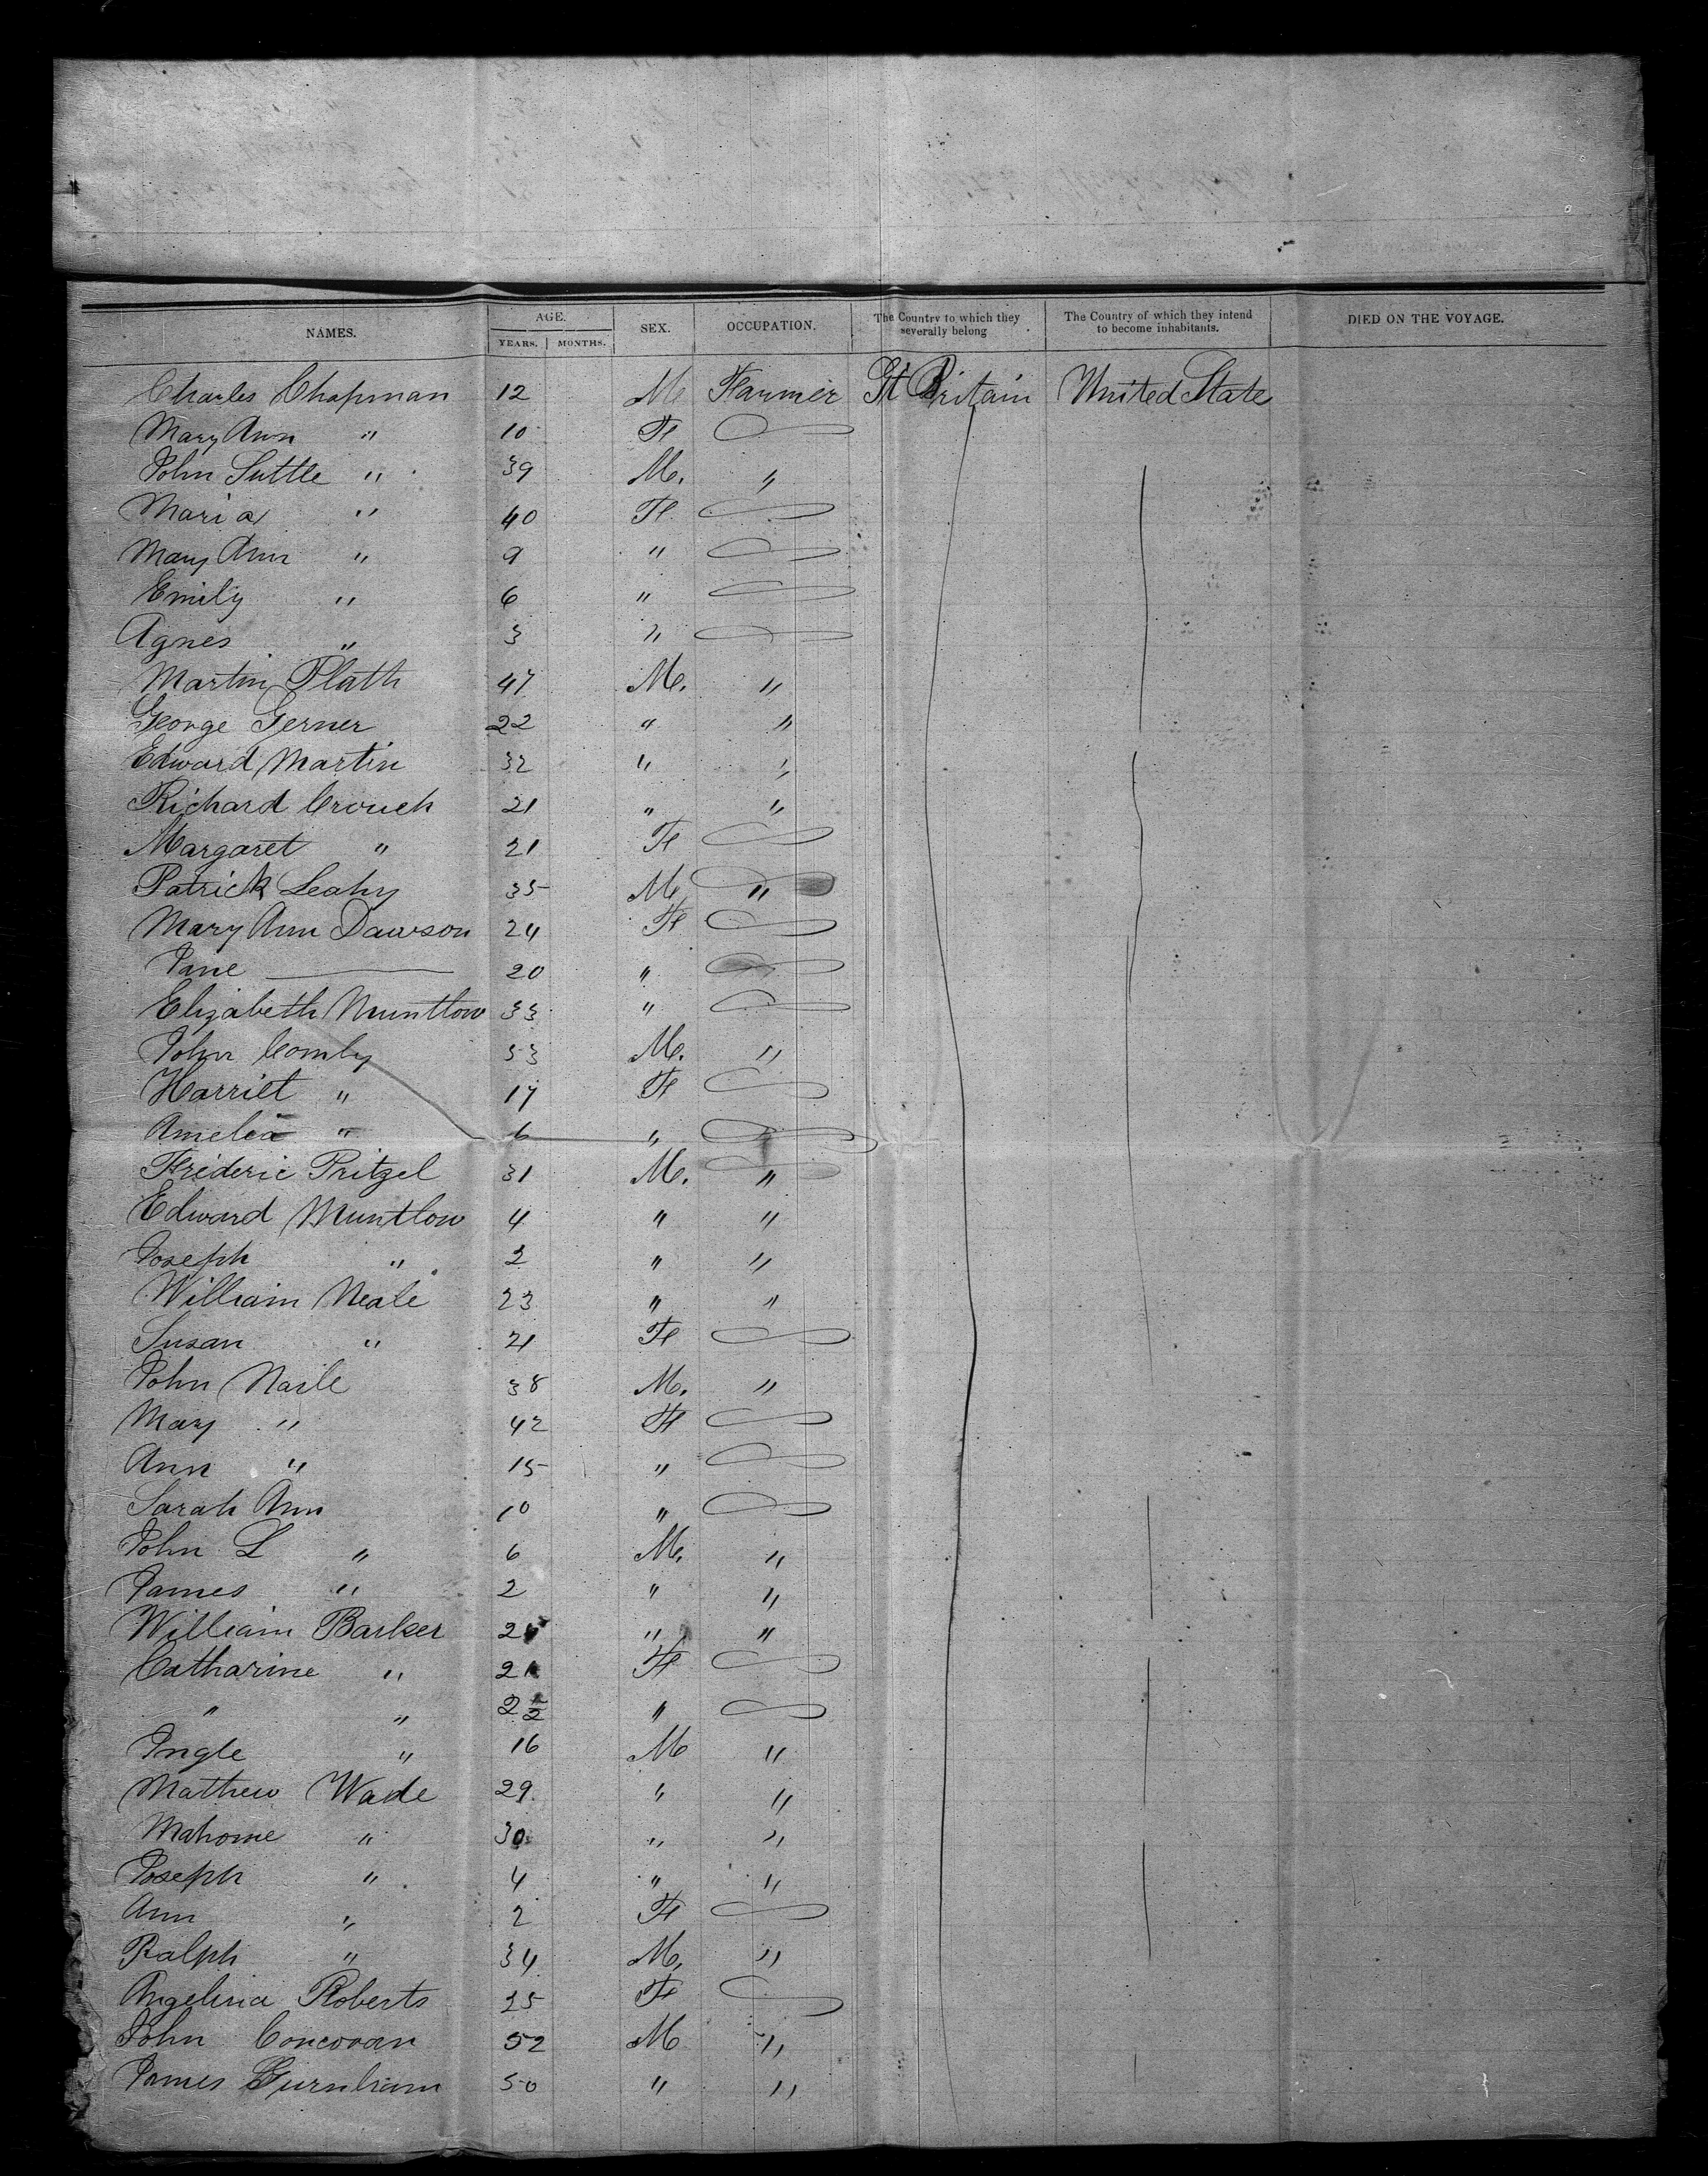 NAMES. AGE. YEARS. MONTHS. SEX. OCCUPATION. The Country to which they severally belong The Country of which they intend to become inhabitants. DIED ON THE VOYAGE.
Charles Chapman 12 M Farmer Gt Britain United State
Mary Ann " 10 F
John Suttle " 39 M. "
Maria " 40 F
Mary Ann " 9 "
Emily " 6 "
Agnes " 3 "
Martin Plath 47 M. "
George Gerner 22 " "
Edward Martin 32 " "
Richard Crouch 21 " "
Margaret " 21 F
Patrick Leahy 35 M. "
Mary Ann Dawson 24 F
Jane — 20 "
Elizabeth Muntlow 33 "
John Comly 53 M. "
Harriet " 17 F
Amelia " 6 "
Frideric Pritzel 31 M. "
Edward Muntlow 4 " "
Joseph " 2 " "
William Neale 23 " "
Susan " 21 F
John Naile 38 M. "
Mary " 42 F
Ann " 15 "
Sarah Ann 10 "
John L " 6 M. "
James " 2 " "
William Barker " "
Catharine " 21 F
" " 2 1/2 "
Ingle " 16 M "
Mathew Wade 29 " "
Mahome " 30 " "
Joseph " 4 " "
Ann " 2 F
Ralph " 34 M. "
Angelina Roberts 25 F
John Concoran 52 M "
James Gurnham 50 " "